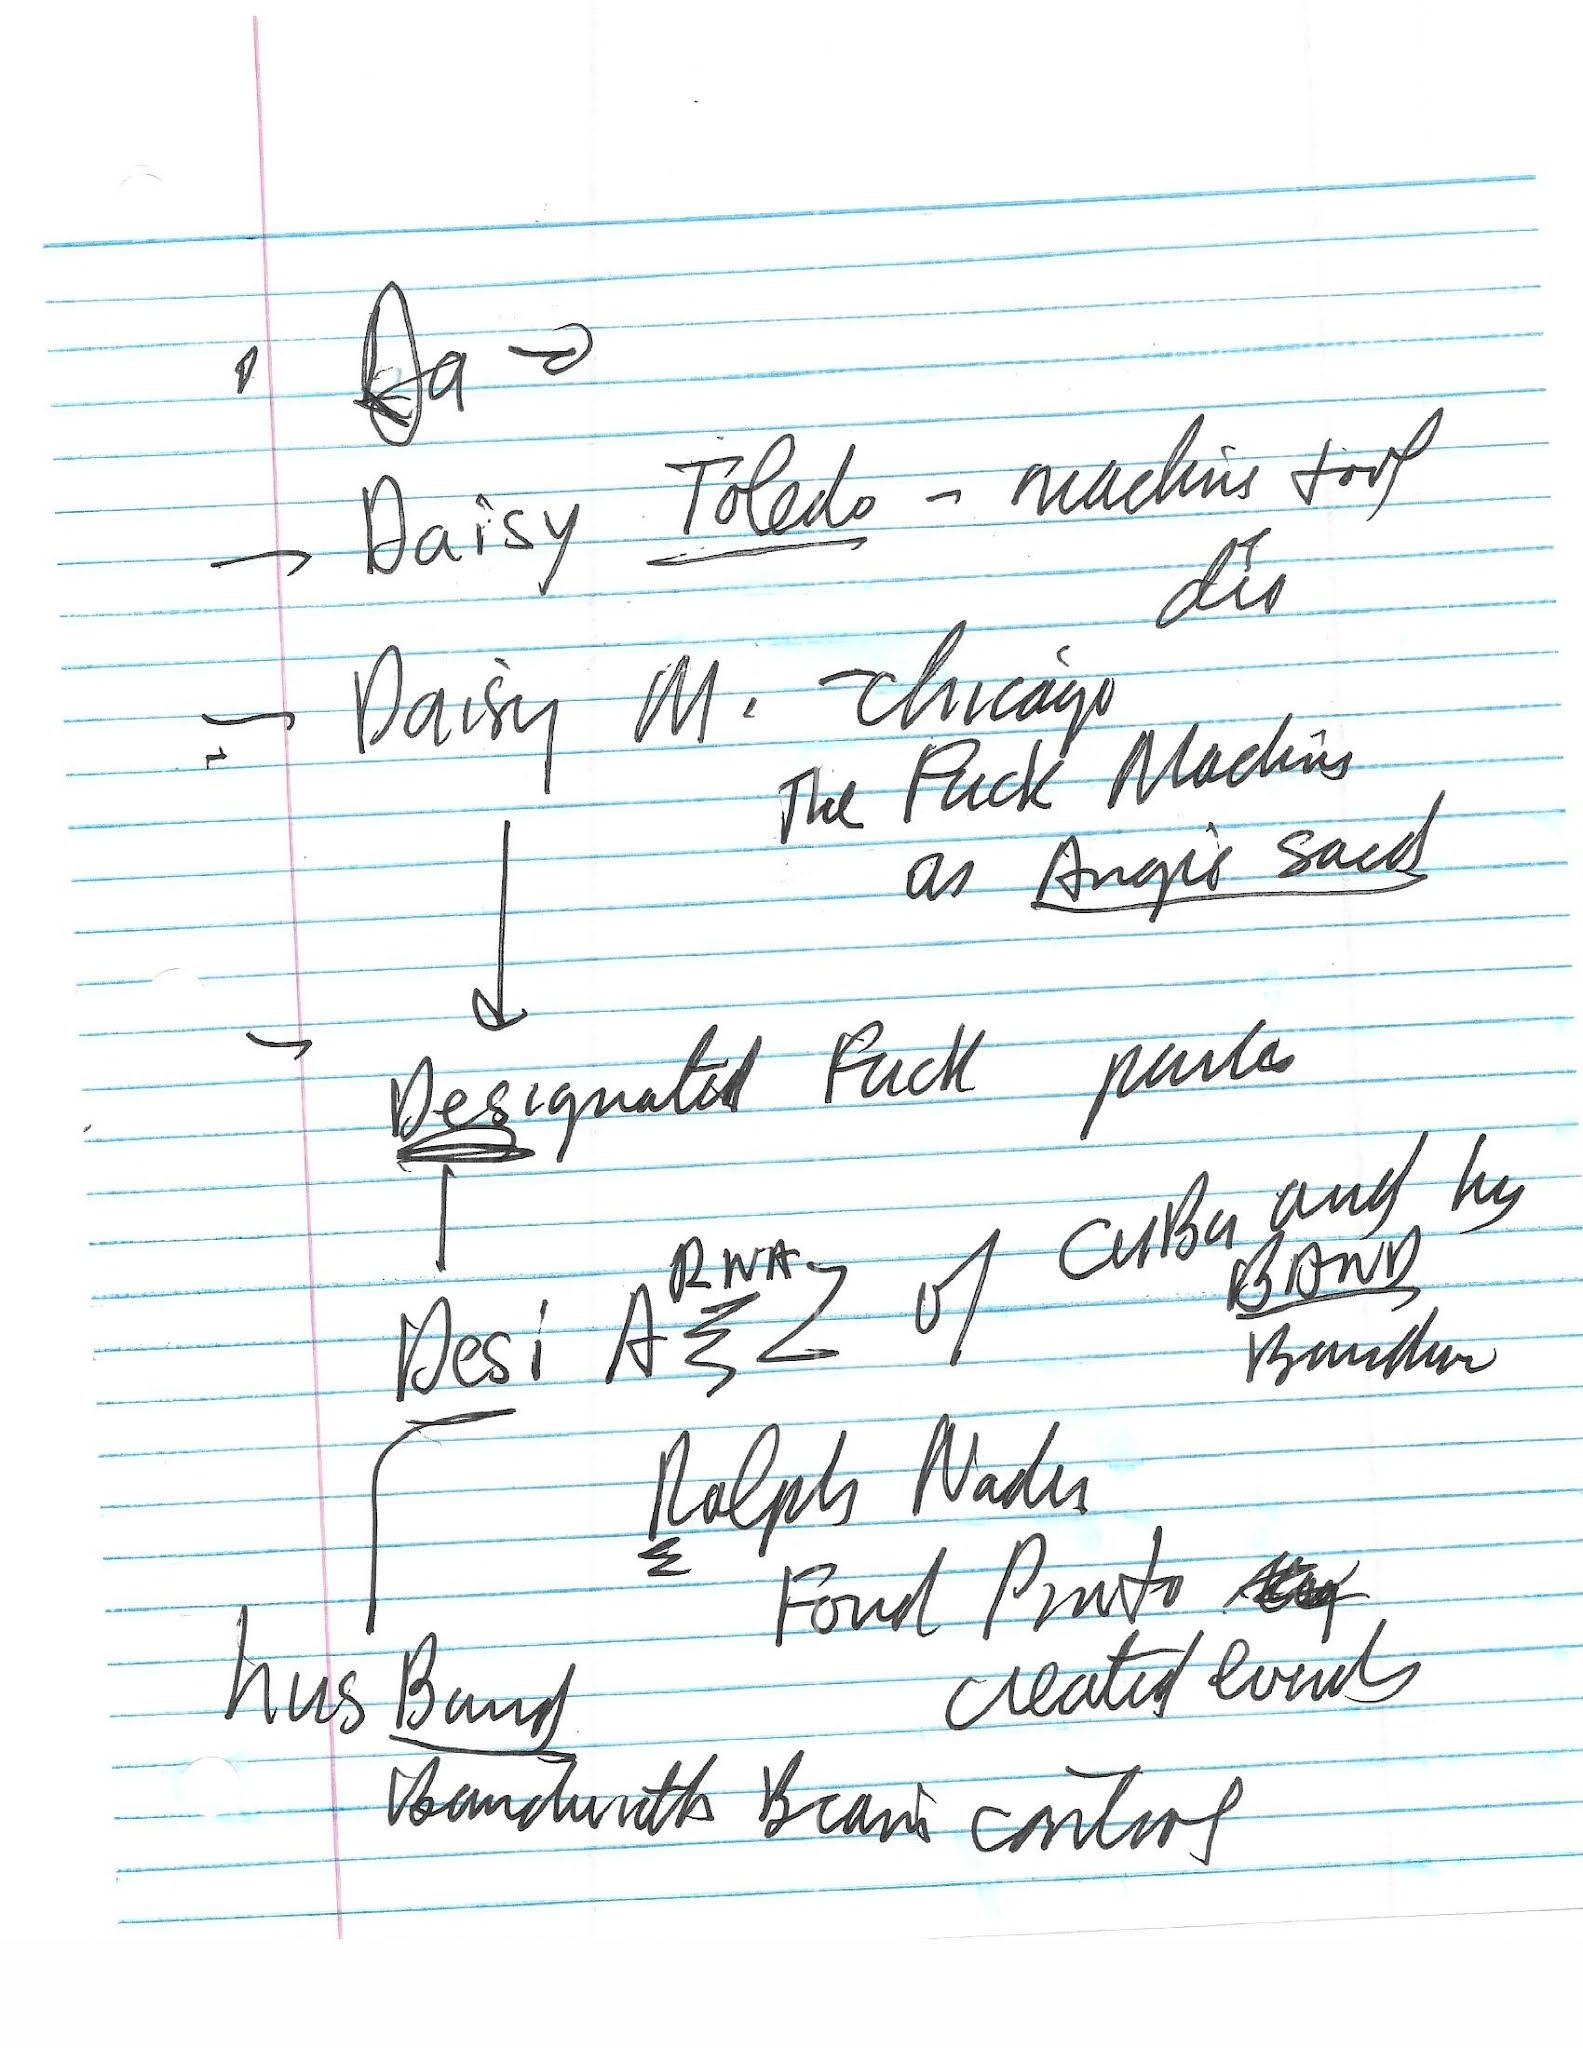 Da
Daisy Toledo - machine tool
die
Daisy M. - chicago
The Fuck Machine
as Angie said
Designated Fuck
Desi A RNA Z of CUBa and his
BAND
Ralph Nader
Ford Pinto
created events
hus Band
Bandwidth Brain control